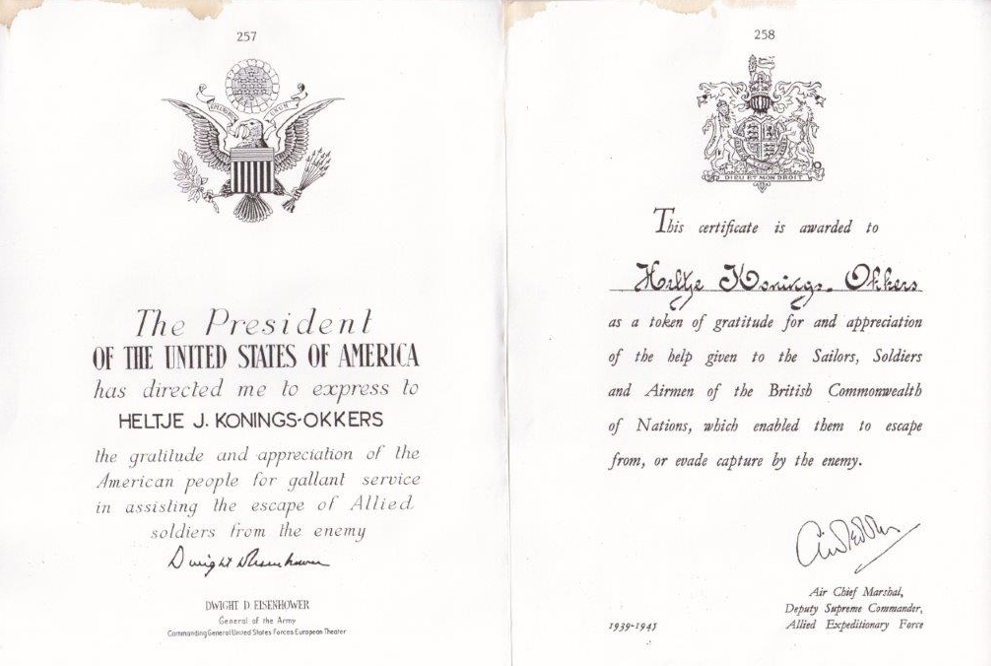 257
The President
OF THE UNITED STATES OF AMERICA
has directed me to express to
HELTJE J. KONINGS-OKKERS
the gratitude and appreciation of the
American people for gallant service
in assisting the escape of Allied
soldiers from the enemy
Dwight D Eisenhower
DWIGHT D EISENHOWER
General of the Army
Commanding General United States Forces European Theater
258
DIEU ET MON DROIT
This certificate is awarded to
Heltje Konings-Okkers
as a token of gratitude for and appreciation
of the help given to the Sailors, Soldiers
and Airmen of the British Commonwealth
of Nations, which enabled them to escape
from, or evade capture by the enemy.
Air Chief Marshal,
Deputy Supreme Commander,
1939-1945 Allied Expeditionary Force